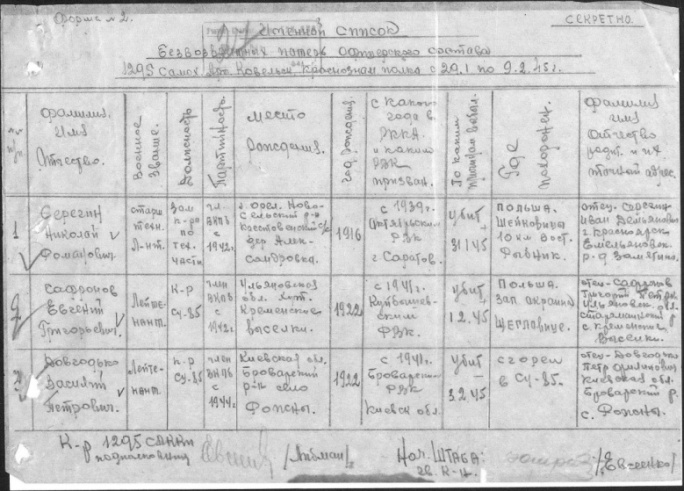 Форма №2.
СЕКРЕТНО.
Именной список
Безвозвратных потерь офицерского состава
1295 Самох. Арт. Ковельск Краснознам полка с 29.1 по 9.2.45г.
Фамилия.
Имя
Отчество.
Военное
звание.
Должность
Партийность.
Место
рождения.
Год рождения.
с какого
года в
РККА
и каким
РВК
призван.
По каким
причинам выбыл.
Где
похоронен.
Фамилия
имя
отчество
родит. и их
точный адрес.
1
Серегин
Николай
старш
техн.
Л-нт.
Зам
к-ра
по
тех.
части
чл
ВКПб
с
1942г.
дер Алек-
сандровка.
1916
с 1939г.
Октябрьский
РВК
г Саратов.
убит
31.1.45
Польша.
10 км вост.
Рыбник.
отец - Серегин
Иван
г Красноярск
Емельяновск.
р-д
2
Сафронов
Евгений
Григорьевич.
Лейте-
нант.
К-р
СУ-85
член
ВКПб
с
1942г.
Ульяновская
обл.
Кременские
Васелки.
1922
с 1941г.
Куйбышев-
ским
РВК.
убит
1.2.45
Польша
зап. окраина
Щегловице.
отец - Сафронов
Григорий
Ульяновск. обл.
с. Кременские
Васелки.
3
Довгодько
Василий
Петрович.
Лейте-
нант.
к-р
СУ-85
член
ВКПб
с
1944г.
Киевская обл.
Броварский
р-н село
1922
с 1941г.
Броварский
РВК
Киевск обл.
убит
3.2.45
сгорел
в СУ-85.
отец - Довгодько
Петр
Киевская обл.
Броварский р.
с.
К-р 1295
подполковник /Либман/
Нач. Штаба:
/Евсеенко/